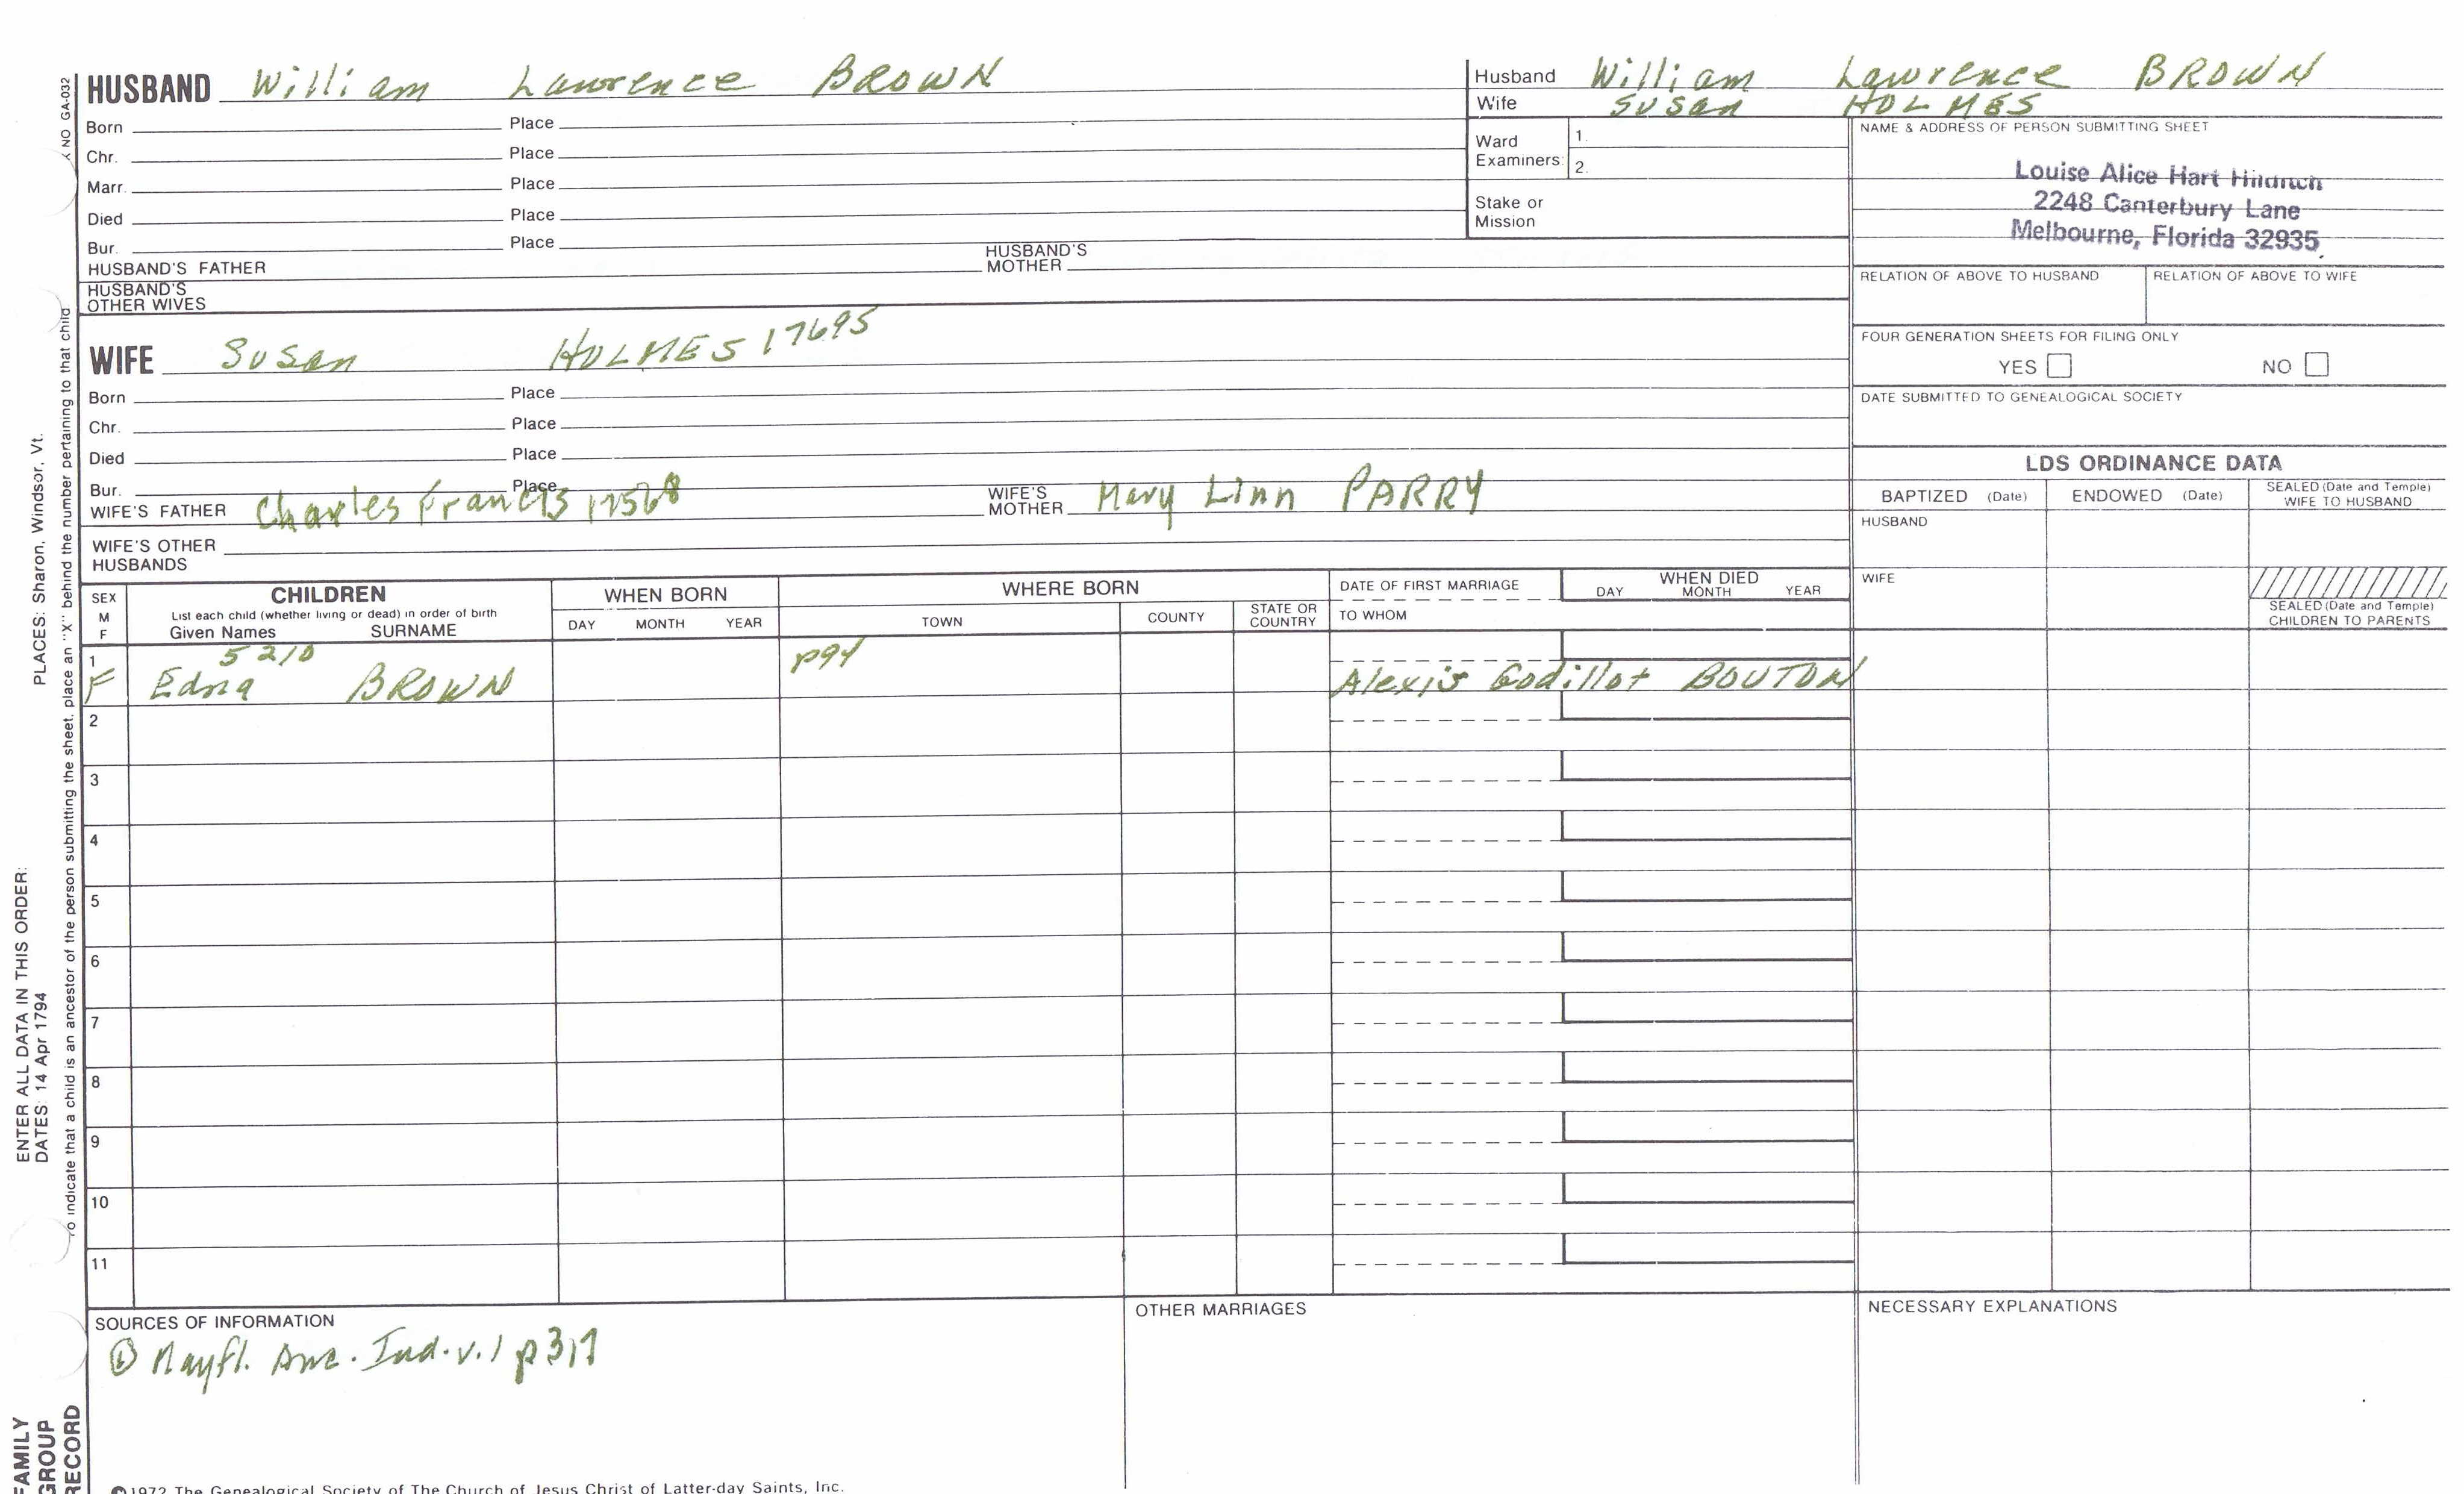 HUSBAND William Lawrence BROWN
Born Place
Chr. Place
Marr. Place
Died Place
Bur. Place
HUSBAND'S FATHER HUSBAND'S MOTHER
HUSBAND'S OTHER WIVES
Husband William Lawrence BROWN
Wife Susan HOLMES
Ward Examiners: 1.
2.
Stake or Mission
NAME & ADDRESS OF PERSON SUBMITTING SHEET
Louise Alice Hart
2248 Canterbury Lane
Melbourne, Florida 32935
RELATION OF ABOVE TO HUSBAND RELATION OF ABOVE TO WIFE
FOUR GENERATION SHEETS FOR FILING ONLY
YES NO
DATE SUBMITTED TO GENEALOGICAL SOCIETY
WIFE Susan HOLMES 17695
Born Place
Chr. Place
Died Place
Bur. Place
WIFE'S FATHER Charles Francis WIFE'S MOTHER Mary Linn PARRY
WIFE'S OTHER HUSBANDS
LDS ORDINANCE DATA
BAPTIZED (Date) ENDOWED (Date) SEALED (Date and Temple) WIFE TO HUSBAND
HUSBAND
WIFE
SEALED (Date and Temple) CHILDREN TO PARENTS
SEX M F CHILDREN WHEN BORN WHERE BORN DATE OF FIRST MARRIAGE WHEN DIED
List each child (whether living or dead) in order of birth
Given Names SURNAME DAY MONTH YEAR TOWN COUNTY STATE OR COUNTRY TO WHOM DAY MONTH YEAR
1 5210 p94
F Edna BROWN Alexis Godillot BOUTON
2
3
4
5
6
7
8
9
10
11
SOURCES OF INFORMATION OTHER MARRIAGES NECESSARY EXPLANATIONS
① Mayfl. Anc. Ind. v.1 p317
©1972 The Genealogical Society of The Church of Jesus Christ of Latter-day Saints, Inc.
NO GA-032
To indicate that a child is an ancestor of the person submitting the sheet, place an "X" behind the number pertaining to that child
ENTER ALL DATA IN THIS ORDER:
DATES: 14 Apr 1794 PLACES: Sharon, Windsor, Vt.
FAMILY
GROUP
RECORD